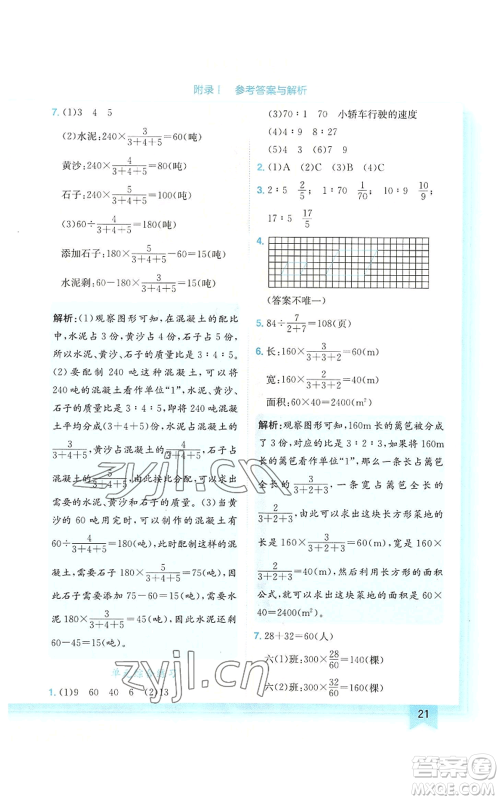 附录Ⅰ 参考答案与解析
7. (1)3 4 5
(2)水泥：240×3/(3+4+5)=60(吨)
黄沙：240×4/(3+4+5)=80(吨)
石子：240×5/(3+4+5)=100(吨)
(3)60÷4/(3+4+5)=180(吨)
添加石子：180×5/(3+4+5)-60=15(吨)
水泥剩：60-180×3/(3+4+5)=15(吨)
解析：(1)观察图形可知，在混凝土的配比
中，水泥占 3 份，黄沙占 4 份，石子占 5 份，所
以，水泥、黄沙、石子的质量比是 3∶4∶5。
(2)要配制这样的混凝土 240 吨，可以将
240 吨的混凝土看作单位“1”，水泥、黄沙、
石子的质量比是 3∶4∶5，水泥占混凝土
的3/(3+4+5)，黄沙占混凝土的4/(3+4+5)，石子
占混凝土的5/(3+4+5)，由此按比分配，可以求出
需要的水泥、黄沙、石子的质量。(3)当黄
沙的 60 吨用完时，可以制作的混凝土有
60÷4/(3+4+5)=180(吨)，制作 180 吨的混
凝土，需要石子180×5/(3+4+5)=75(吨)，则
石子还需要添加 75-60=15(吨)，需要水
泥180×3/(3+4+5)=45(吨)，则水泥还剩
60-45=15(吨)。
1. (1)9 60 40 6 (2)13
(3)70∶1 70 小轿车行驶的速度
(4)4∶9 4∶5 9∶5
2. (1)A (2)C (3)B
3. 2∶5 2/5 1∶70 1/70 10∶9 10/9
17∶5 17/5
4.
(答案不唯一)
5. 84÷7/(2+7)=108(页)
6. 长：160×3/(3+3+2)=60(m)
宽：160×2/(3+3+2)=40(m)
面积：60×40=2400(m²)
解析：观察图形可知，160m 长的篱笆被分成
了 3 份，对应的比是 3∶2∶3，如果将 160m
长的篱笆看作单位“1”，那么一条长占篱笆
全长的3/(3+2+3)，一条宽占篱笆全长的
2/(3+2+3)，由此可以求出这块长方形菜地的
长是160×3/(3+2+3)=60(m)，宽是160×
2/(3+2+3)=40(m)，然后利用长方形的面积
公式，就可以求出这块菜地的面积是 60×
40=2400(m²)。
7. 28+32=60(人)
六(1)班：300×28/60=140(棵)
六(2)班：300×32/60=160(棵)
21
zyjl.cn
zyjl.cn